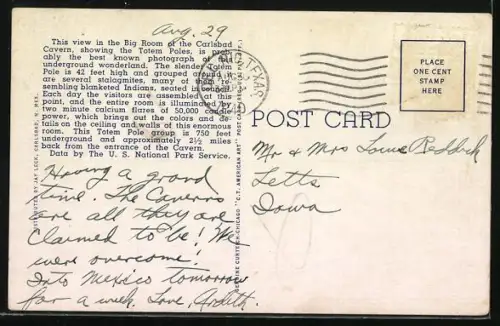 Aug. 29
This view in the Big Room of the Carlsbad
Cavern, showing the Totem Poles, is prob-
ably the best known photograph of this
underground wonderland. The slender Totem
Pole is 42 feet high and grouped around it
are several stalagmites, many of them re-
sembling blanketed Indians, seated in council.
Each day the visitors are assembled at this
point, and the entire room is illuminated by
two minute calcium flares of 50,000 candle
power, which brings out the colors and de-
tails on the ceiling and walls of this enormous
room. This Totem Pole group is 750 feet
underground and approximately 2½ miles
back from the entrance of the Cavern.
Data by The U. S. National Park Service.
Having a grand
time. The Caverns
are all they are
claimed to be! We
were overcome!
Into Mexico tomorrow
for a week. Love, Ardith.
DISTRIBUTED BY JAY LECK, CARLSBAD, N. MEX.
GENUINE CURTEICH-CHICAGO "C.T. AMERICAN ART" POST CARD
TEXAS
POST CARD
PLACE
ONE CENT
STAMP
HERE
Mr & Mrs Louie Reddick
Letts
Iowa